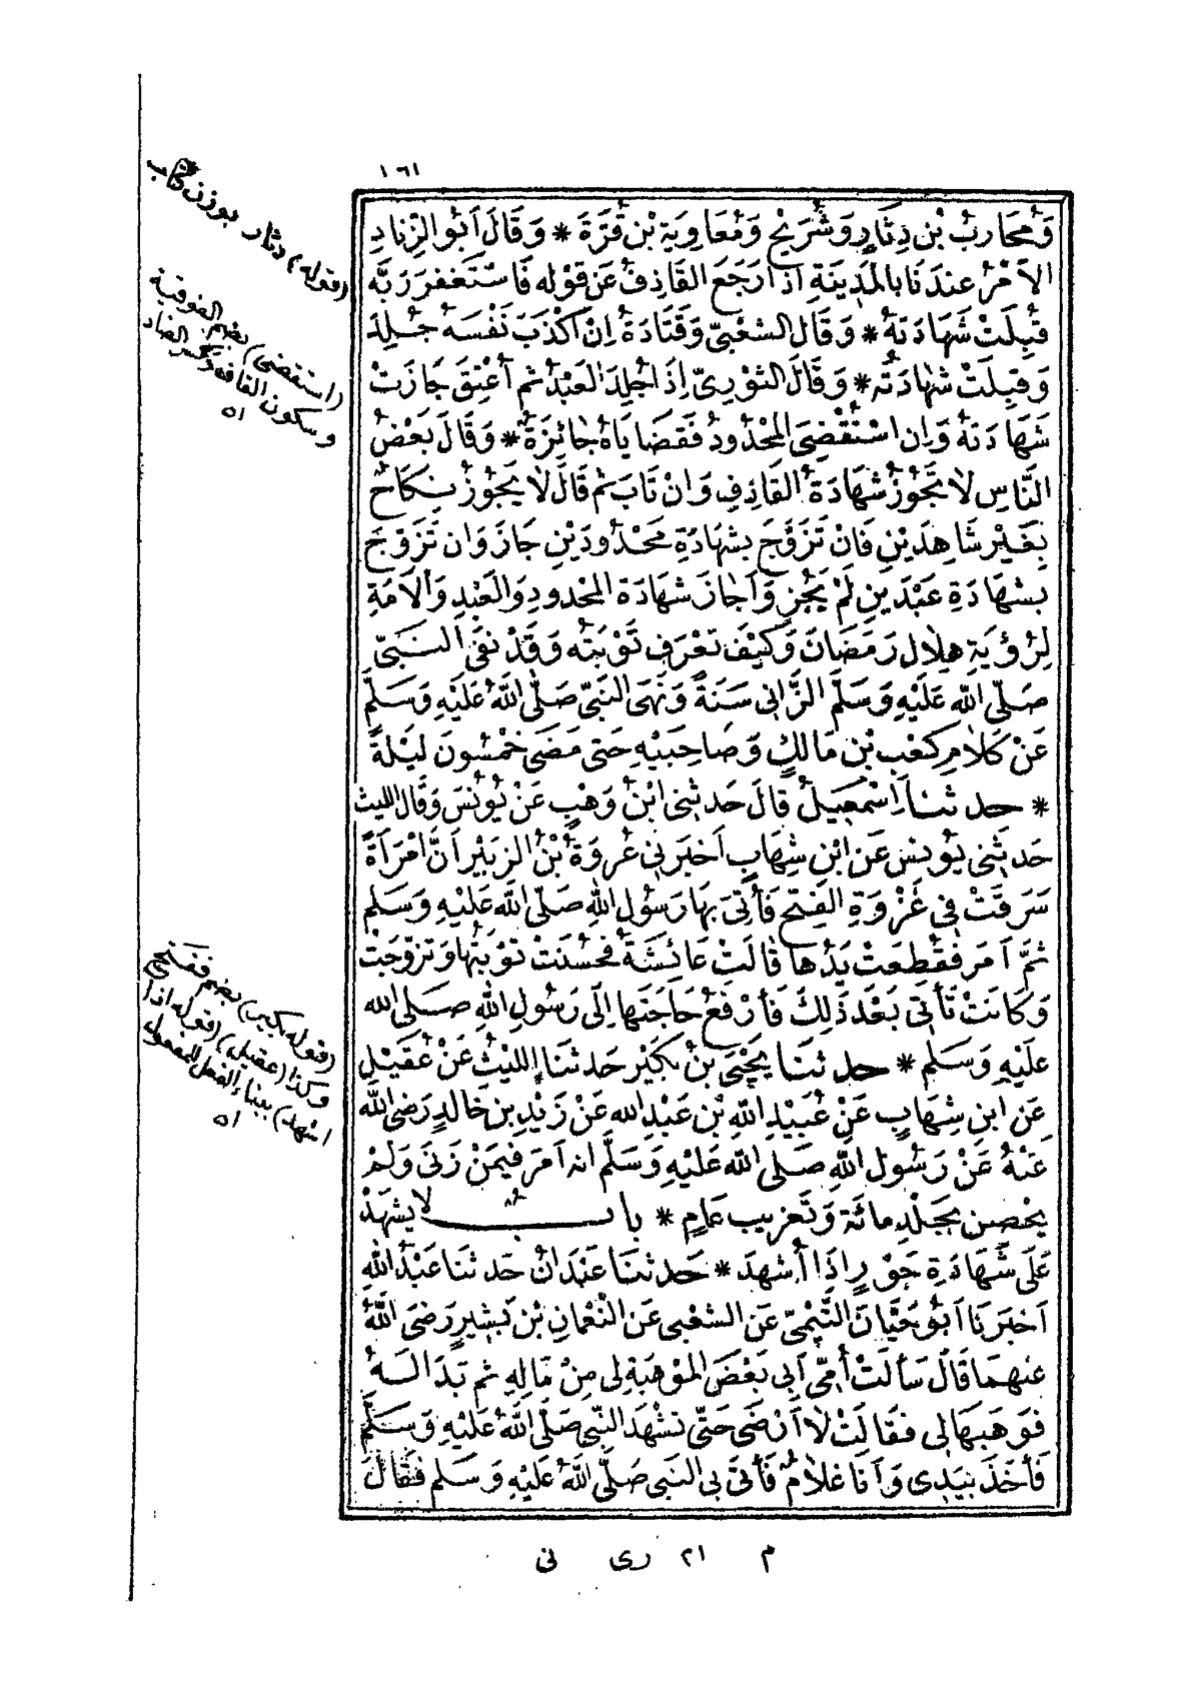 ١٦١
وَمُحَارِبُ بْنُ دِثَارٍ وَشُرَيْحٌ وَمُعَاوِيَةُ بْنُ قُرَّةَ * وَقَالَ أَبُو الزِّنَادِ
الاَمْرُ عِنْدَنَا بِالمَدِينَةِ اِذَا رَجَعَ القَاذِفُ عَنْ قَوْلِهِ فَاسْتَغْفَرَ رَبَّهُ
قُبِلَتْ شَهَادَتُهُ * وَقَالَ الشَّعْبِيُّ وَقَتَادَةُ اِنْ اَكْذَبَ نَفْسَهُ جُلِدَ
وَقُبِلَتْ شَهَادَتُه * وَقَالَ الثَّوْرِيُّ اِذَا جُلِدَ العَبْدُ ثُمَّ أُعْتِقَ جَازَتْ
شَهَادَتُهُ وَاِنِ اسْتُقْضِيَ المَحْدُودُ فَقَضَايَاهُ جَائِزَةٌ * وَقَالَ بَعْضُ
النَّاسِ لاَ تَجُوزُ شَهَادَةُ القَاذِفِ وَاِنْ تَابَ ثُمَّ قَالَ لاَ يَجُوزُ نِكَاحٌ
بِغَيْرِ شَاهِدَيْنِ فَاِنْ تَزَوَّجَ بِشَهَادَةِ مَحْدُودَيْنِ جَازَ وَاِنْ تَزَوَّجَ
بِشَهَادَةِ عَبْدَيْنِ لَمْ يَجُزْ وَاَجَازَ شَهَادَةَ المَحْدُودِ وَالعَبْدِ وَالاَمَةِ
لِرُؤْيَةِ هِلاَلِ رَمَضَانَ وَكَيْفَ تُعْرَفُ تَوْبَتُه وَقَدْ نَفَى النَّبِيُّ
صَلَّى اللهُ عَلَيْهِ وَسَلَّمَ الزَّانِيَ سَنَةً وَنَهَى النَّبِيُّ صَلَّى اللهُ عَلَيْهِ وَسَلَّمَ
عَنْ كَلاَمِ كَعْبِ بْنِ مَالِكٍ وَصَاحِبَيْهِ حَتَّى مَضَى خَمْسُونَ لَيْلَةً
* حدثنا اِسْمَعِيلُ قَالَ حَدثنِي ابْنُ وَهْبٍ عَنْ يُونُسَ وَقَالَ اللَّيْثُ
حَدثَنِي يُونُسُ عَنِ ابْنِ شِهَابٍ اَخْبَرَنِي عُرْوَةُ بْنُ الزُّبَيْرِ اَنَّ امْرَأَةً
سَرَقَتْ فِي غَزْوَةِ الفَتْحِ فَأُتِيَ بِهَا رَسُولُ اللهِ صَلَّى اللهُ عَلَيْهِ وَسَلَّمَ
ثُمَّ اَمَرَ فَقُطِعَتْ يَدُهَا قَالَتْ عَائِشَةُ فَحَسُنَتْ تَوْبَتُهَا وَتَزَوَّجَتْ
وَكَانَتْ تَأْتِي بَعْدَ ذَلِكَ فَأَرْفَعُ حَاجَتَهَا اِلَى رَسُولِ اللهِ صَلى الله
عَلَيْهِ وَسَلَّمَ * حدثنا يَحْيَى بْنُ بُكَيْرٍ حَدثنَا اللَّيْثُ عَنْ عُقَيْلٍ
عَنِ ابْنِ شِهَابٍ عَنْ عُبَيْدِ اللهِ بْنِ عَبْدِ الله عَنْ زَيْدِ بْنِ خَالِدٍ رَضِيَ اللهُ
عَنْهُ عَنْ رَسُولِ اللهِ صَلَّى اللهُ عَلَيْهِ وَسَلَّمَ انه اَمَرَ فِيمَنْ زَنَى وَلَمْ
يُحْصِنْ بِجَلْدِ مِائَةٍ وَتَغْرِيبِ عَامٍ * بابٌ لاَ يَشْهَدُ
عَلَى شَهَادَةِ جَوْرٍ اِذَا أُشْهِدَ * حَدثنَا عَبْدَانُ حَدثنَا عَبْدُ اللهِ
اَخْبَرَنَا اَبُو حَيَّانَ التَّيْمِيُّ عَنِ الشَّعْبِي عَنِ النُّعْمَانِ بْنِ بَشِيرٍ رَضِيَ اللهُ
عَنهمَا قَالَ سَأَلَتْ أُمِّي اَبِي بَعْضَ المَوْهِبَةِ لِي مِنْ مَالِهِ ثُمَّ بَدَا لَهُ
فَوَهَبَهَا لِي فَقَالَتْ لاَ اَرْضَى حَتَّى تُشْهِدَ النَّبِيَّ صَلَّى اللهُ عَلَيْهِ وَسَلَّمَ
فَأَخَذَ بِيَدِي وَاَنَا غُلاَمٌ فَأَتَى بِي النَّبِيَّ صَلَّى اللهُ عَلَيْهِ وَسَلَّمَ فَقَالَ
(قوله) دثار بوزن كتاب
(استقضى) بضم الفوقية
وسكون القاف وكسر الضاد
اه
(قوله بكير) بضم ففتح
وكذا (عقيل) (قوله اذا
اشهد) ببناء الفعل للمفعول
اه
م ٢١ رى نى